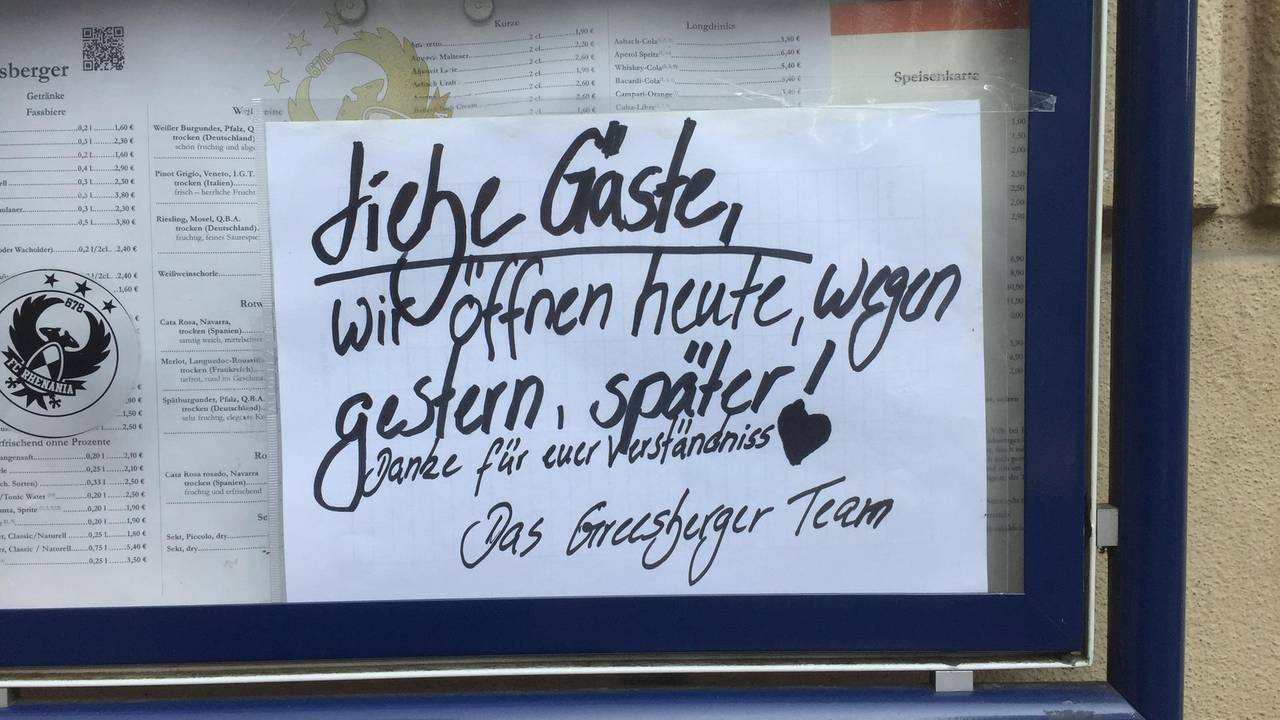 sberger
Getränke
Fassbiere
0,2 l 1,60 €
0,5 l 2,30 €
0,2 l 1,60 €
0,4 l 2,90 €
0,3 l 2,30 €
0,5 l 3,80 €
0,3 l 2,30 €
0,5 l 3,80 €
oder Wacholder) 0,2 l/2cl. 2,40 €
1/2cl. 2,40 €
1,60 €
Weißer Burgunder, Pfalz, Q
trocken (Deutschland)
Pinot Grigio, Veneto, I.G.T.
trocken (Italien)
frisch – herrliche Frucht
Riesling, Mosel, Q.B.A.
trocken (Deutschland)
fruchtig, feines Säurespie
Weißweinschorle
Rotw
Cata Rosa, Navarra,
trocken (Spanien)
samtig weich, mittelschwe
Merlot, Languedoc-Roussil
trocken (Frankreich)
Spätburgunder, Pfalz, Q.B.A.
trocken (Deutschland)
Ro
Cata Rosa rosado, Navarra
trocken (Spanien)
fruchtig und erfrischend
Se
Sekt, Piccolo, dry
Sekt, dry
678
FC RHENANIA
1,50 €
2,50 €
rfrischend ohne Prozente
angensaft 0,20 l 2,10 €
0,25 l 2,10 €
ch. Sorten) 0,33 l 2,50 €
/Tonic Water 0,20 l 2,50 €
nta, Sprite 0,20 l 1,90 €
0,20 l 1,90 €
r, Classic/Naturell 0,25 l 1,80 €
r, Classic / Naturell 0,75 l 5,40 €
0,25 l 3,50 €
678
Kurze
2 cl. 1,90 €
2 cl. 2,20 €
Malteser 2 cl. 2,60 €
2 cl. 1,90 €
2 cl. 2,60 €
2 cl. 2,60 €
Longdrinks
Asbach-Cola 5,80 €
Aperol Spritz 6,40 €
Whiskey-Cola 5,40 €
Bacardi-Cola 5,40 €
Campari-Orange
Cuba-Libre
Speisenkarte
Liebe Gäste,
wir öffnen heute, wegen
gestern, später!
Danke für euer Verständniss
Das Greesberger Team